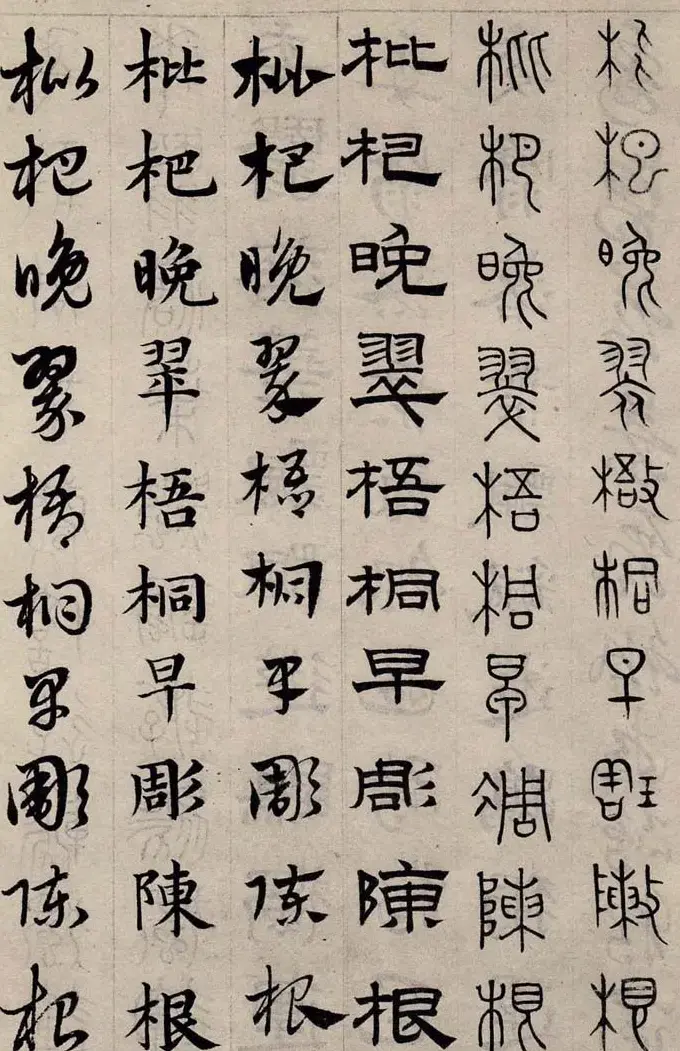 枇杷晚翠梧桐早琱陳根
枇杷晚翠梧桐早凋陳根
枇杷晚翠梧桐早彫陳根
枇杷晚翠梧桐早彫陳根
枇杷晚翠梧桐早彫陳根
枇杷晚翠梧桐早彫陳根